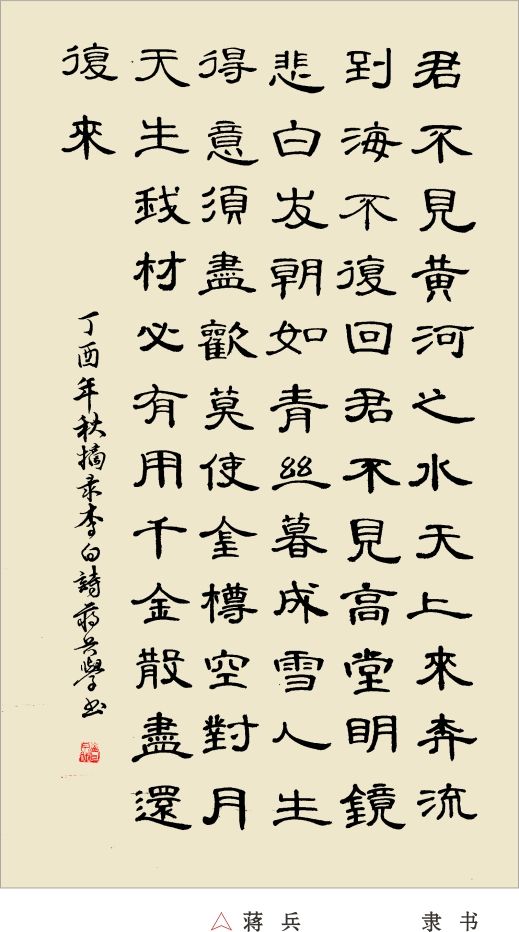 君不見黃河之水天上來奔流
到海不復回君不見高堂明鏡
悲白发朝如青丝暮成雪人生
得意須盡歡莫使金樽空對月
天生我材必有用千金散盡還
復來
丁酉年秋摘录李白詩蔣兵學书
蒋兵 隶书